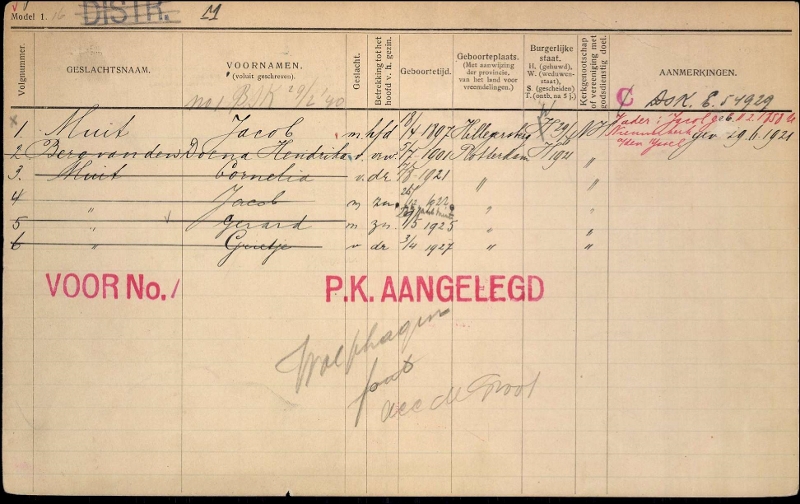 Model 1. DISTR. M
Volgnummer.
GESLACHTSNAAM.
VOORNAMEN.
(voluit geschreven).
Geslacht.
Betrekking tot het hoofd v. h. gezin.
Geboortetijd.
Geboorteplaats.
(Met aanwijzing der provincie, en van het land voor vreemdelingen.)
Burgerlijke staat.
H. (gehuwd),
W. (weduwenstaat),
S. (gescheiden)
T. (ontb. na 5 j.)
Kerkgenootschap of vereeniging met godsdienstig doel.
AANMERKINGEN.
no 1 B.IK 29/2 '40
C DSK. C. 54929
1 Muit Jacob m hfd 9/4 1897 Hillegersberg H 29/6 NH
Vader: Jacob geb.
Nieuwerkerk
a/den IJssel
gev 29.6.1921
2 Berg van den Dorna Hendrika v. vrw. 5/7 1901 Rotterdam H 1921 "
3 Muit Cornelia v. dr 1921 " "
4 " Jacob m zn. " "
5 " Gerard m zn. 1/5 1925 " "
6 " Geertje v dr 3/4 1927 " "
VOOR No. 1 P.K. AANGELEGD